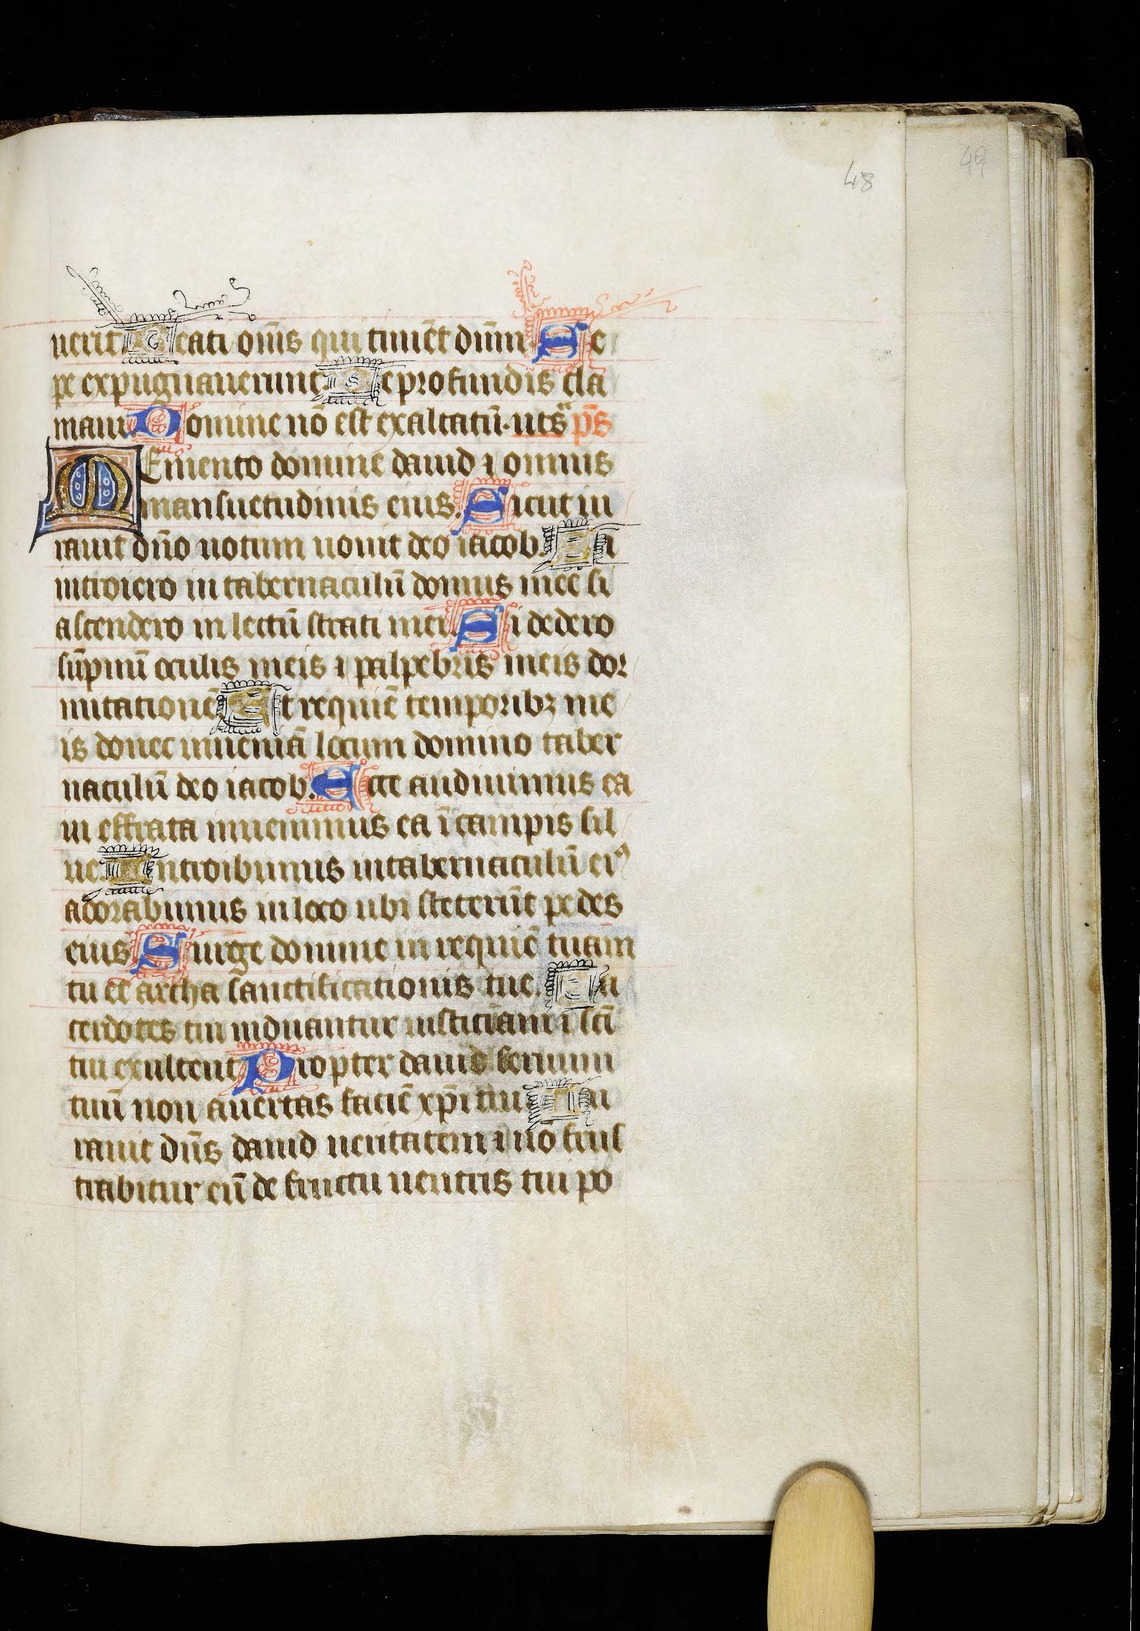 48
49
uerit Beati om̄s qui timēt dūm Se
pe expugnauerunt De profundis cla
maui Domine nō est exaltatū. ut s̄ p̄s
Memento domine dauid ⁊ omnis
mansuetudinis eius. Sicut iu
rauit dn̄o uotum uouit deo iacob. Si
introiero in tabernaculū domus mee si
ascendero in lectū strati mei. Si dedero
sūpnū oculis meis ⁊ palpebris meis dor
mitationē Et requiē temporibꝫ me
is donec inueniā locum domino taber
naculū deo iacob. Ecce audiuimus ea
in effrata inuenimus ea ī campis sil
ue Introibimus in tabernaculū eiꝰ
adorabimus in loco ubi steterūt pedes
eius Surge domine in requiē tuam
tu et archa sanctificationis tue. Sa
cerdotes tui induantur iusticiam ⁊ sc̄i
tui exultent Propter dauid seruum
tuū non auertas faciē xp̄i tui Iu
rauit dn̄s dauid ueritatem ⁊ nō frus
trabitur eū de fructu uentris tui po